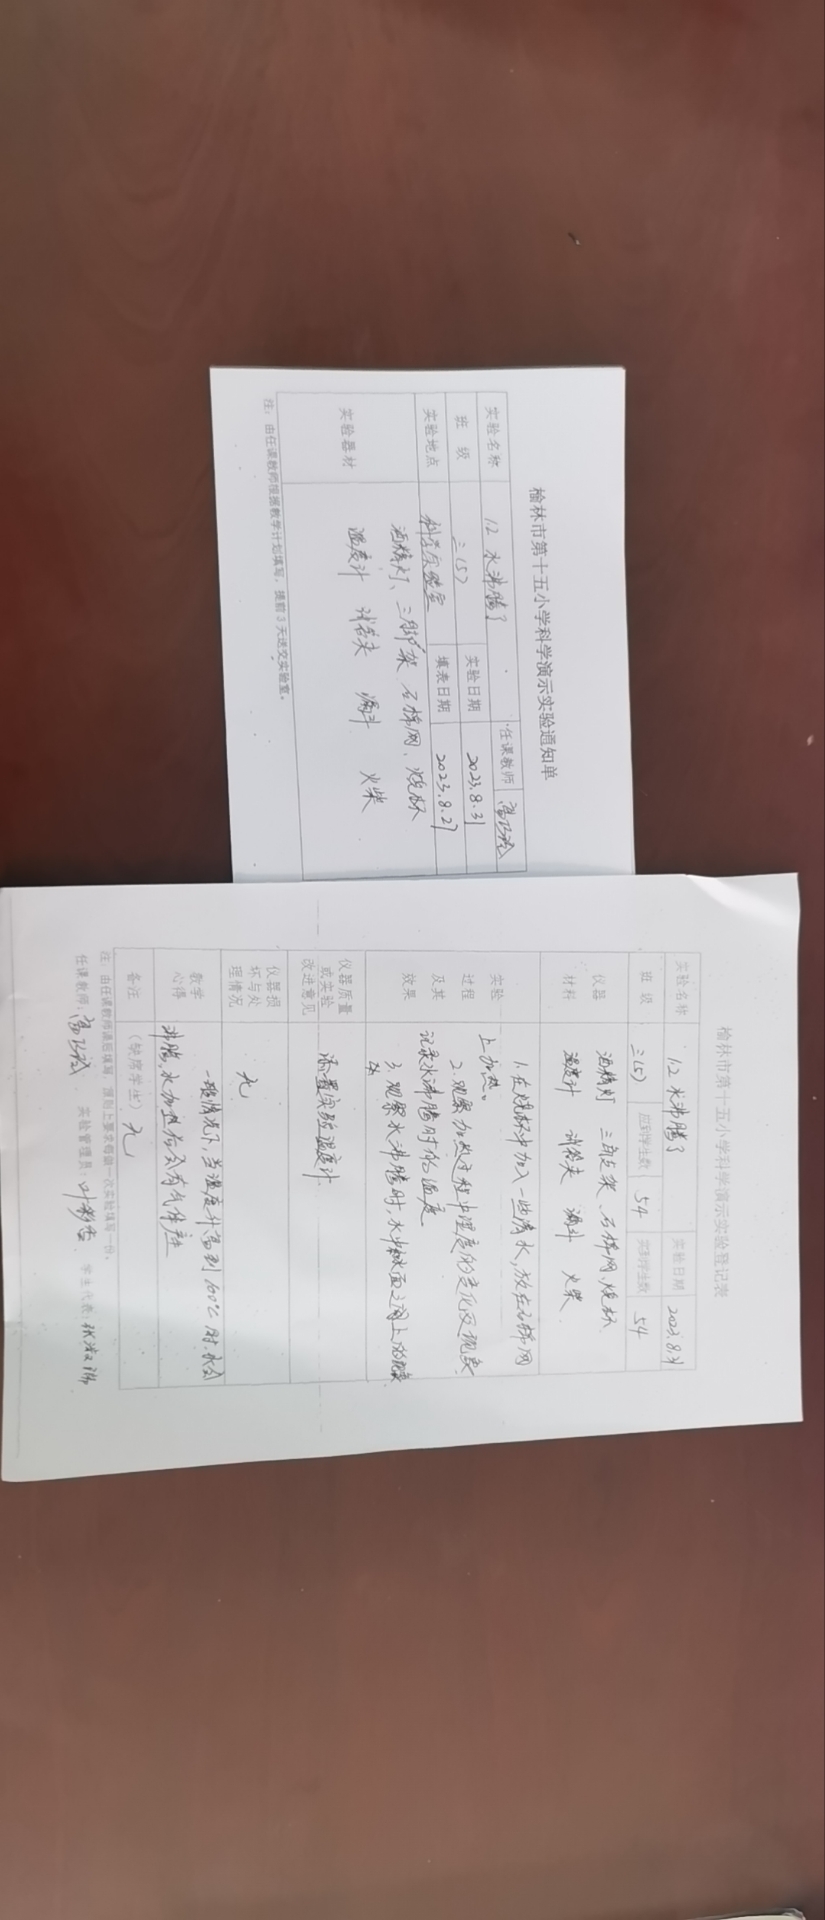 榆林市第十五小学科学演示实验通知单
任课教师
实验名称 1.2 水沸腾了
班 级 三(5) 实验日期 2023.8.31
实验地点 科学实验室 填表日期 2023.8.27
实验器材 酒精灯、三脚架 石棉网、烧杯
温度计 试管夹 漏斗 火柴
注：由任课教师根据教学计划填写，提前3天送交实验室。
榆林市第十五小学科学演示实验登记表
实验名称 1.2 水沸腾了 实验日期 2023.8.31
班 级 三(5) 应到学生数 54 实到学生数 54
仪器材料 酒精灯 三角支架、石棉网、烧杯
温度计 试管夹 漏斗 火柴
实验过程及其效果 1. 在烧杯中加入一些清水，放在石棉网
上加热。
2. 观察加热过程中温度的变化及现象
记录水沸腾时的温度
3. 观察水沸腾时，水中和水面之间上的现象
仪器质量或实验改进意见 添置实验温度计
仪器损坏与处理情况 无
教学心得 一般情况下，当温度计高到100℃时，水会
沸腾，水加热后会有气体产生
备注 (缺席学生) 无
注：由任课教师课后填写，原则上要求每做一次实验填写一份。
任课教师： 实验管理员： 学生代表：